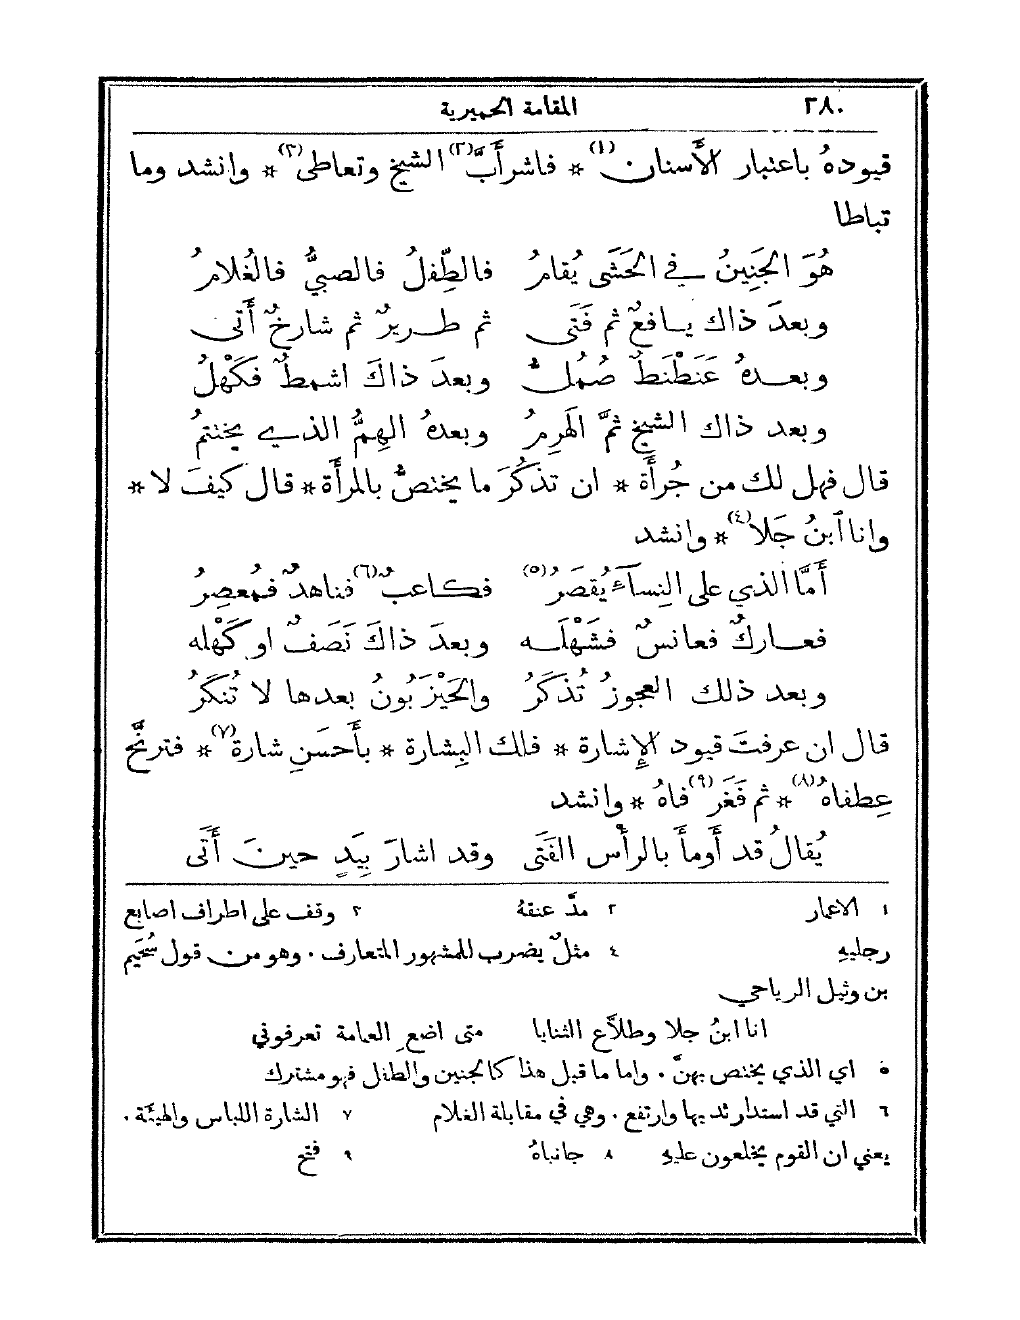 ٢٨٠ المقامة الحميرية
قيودهُ باعتبار الأسنان(١) * فاشرأَبَّ(٢) الشيخ وتعاطى(٣) * وانشد وما
تباطا
هُوَ الجَنِينُ في الحَشَى يُقامُ فالطِّفلُ فالصبيُّ فالغُلامُ
وبعدَ ذاك يافعٌ ثم فَتَى ثم طريرٌ ثم شارخٌ أَتى
وبعدهُ عَنَطْنَطٌ صُمُلُّ وبعدَ ذاكَ اشمطٌ فكَهْلُ
وبعد ذاك الشيخ ثمَّ الهَرِمُ وبعدهُ الهِمُّ الذي يختتمُ
قال فهل لك من جُرأَة * ان تذكُرَ ما يختصُّ بالمرأَة * قال كيفَ لا *
وانا ٱبنُ جَلا(٤) * وانشد
أَمَّا الذي على النِسآءِ يُقصَرُ(٥) فكاعبٌ(٦) فناهدٌ فمُعصِرُ
فعاركٌ فعانسٌ فشَهْلَه وبعدَ ذاكَ نَصَفٌ او كَهْله
وبعد ذلك العجوزُ تُذكَرُ والحَيْزَبُونُ بعدها لا تُنكَرُ
قال ان عرفتَ قيود الإِشارة * فلك البِشارة * بأَحسَنِ شارة(٧) * فترنَّح
عِطفاهُ(٨) * ثم فَغَر(٩) فاهُ * وانشد
يُقالُ قد أَومأَ بالرأْس الفَتَى وقد اشارَ بِيَدٍ حينَ أَتَى
١ الاعمار ٢ مدَّ عنقهُ ٣ وقف على اطراف اصابع
رجليهِ ٤ مثلٌ يضرب للمشهور المتعارف . وهو من قول سُحَيم
بن وثيل الرياحي
انا ابنُ جلا وطلاَّع الثنايا متى اضع ِ العمامة تعرفوني
٥ اي الذي يختص بهنَّ . واما ما قبل هذا كالجنين والطفل فهو مشترك
٦ التي قد استدار ثديها وارتفع . وهي في مقابلة الغلام ٧ الشارة اللباس والهيئة .
يعني ان القوم يخلعون عليهِ ٨ جانباهُ ٩ فتح